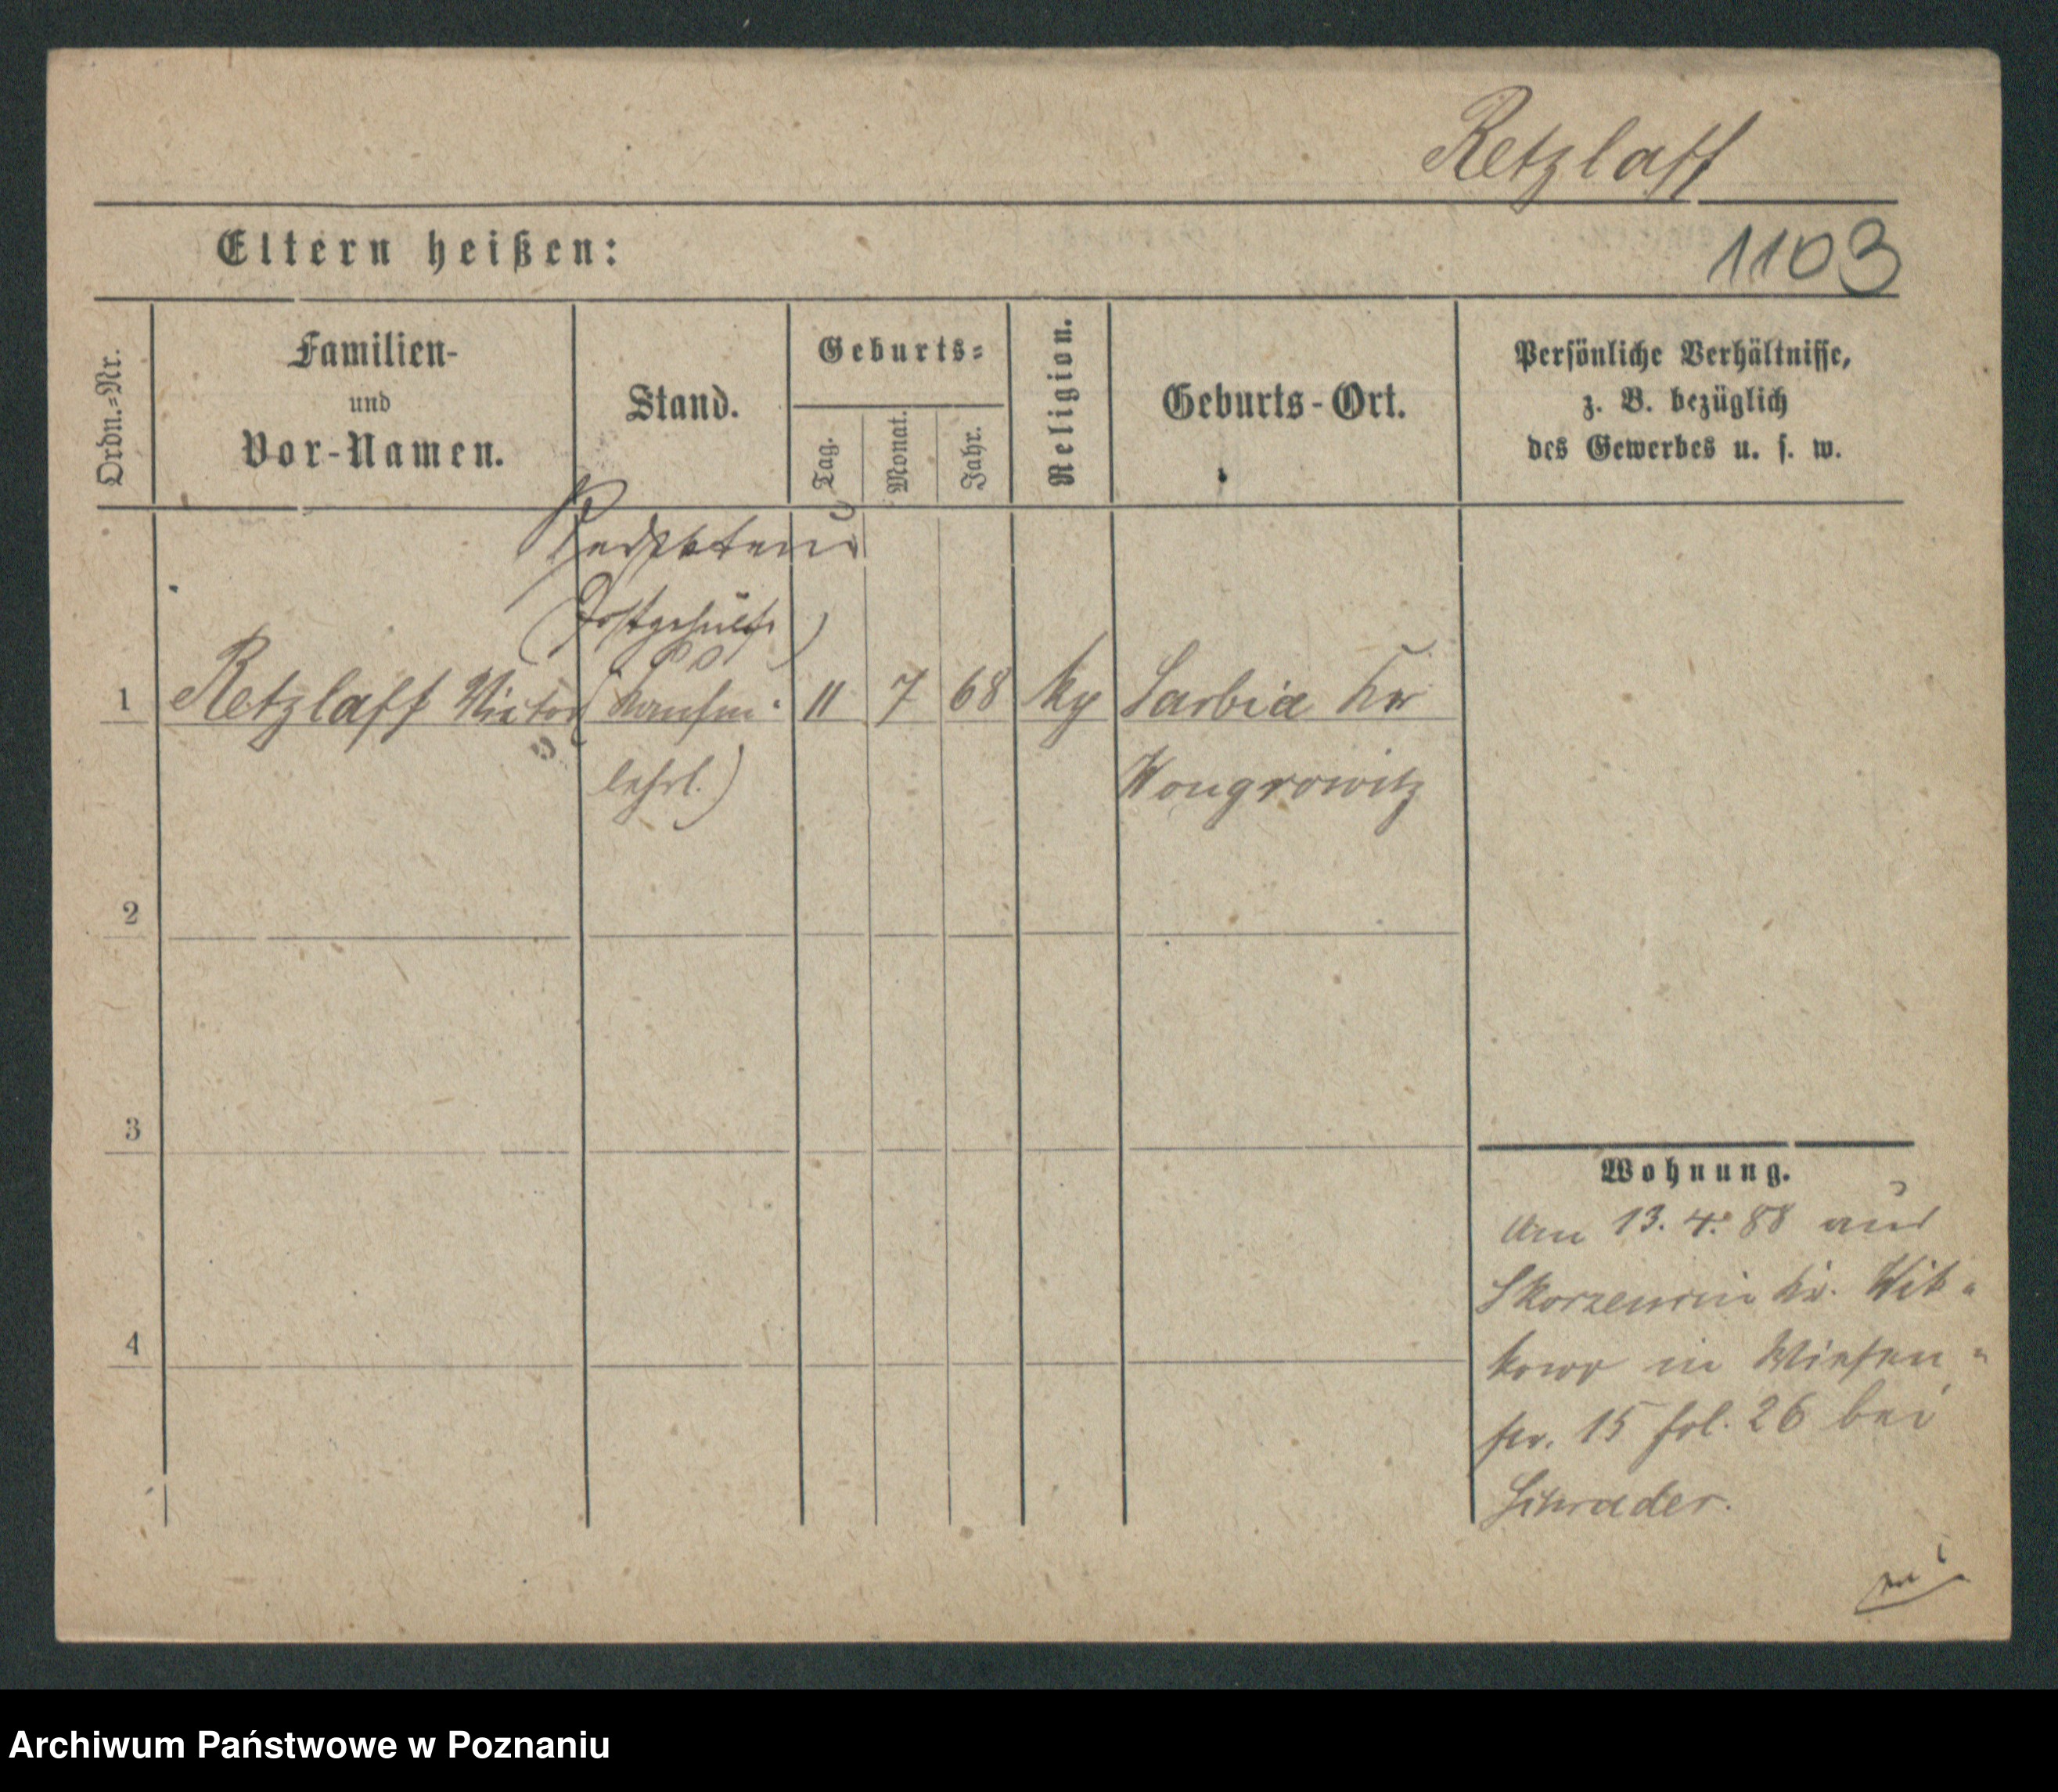 Retzlaff
Eltern heißen:
1103
Ordn.=Nr.
Familien-
und
Vor-Namen.
Stand.
Geburts=
Tag.
Monat.
Jahr.
Religion.
Geburts-Ort.
Persönliche Verhältnisse,
z. B. bezüglich
des Gewerbes u. s. w.
(Postgehülfe)
1 Retzlaff Victor (Kaufm. 11 7 68 Sarbia Kr
lehrl.) Wongrowitz
2
3
4
Wohnung.
Am 13. 4. 88 aus
Skorzencin Kr. Wit=
kowo in Wiesen=
str. 15 fol. 26 bei
Schrader.
Archiwum Państwowe w Poznaniu